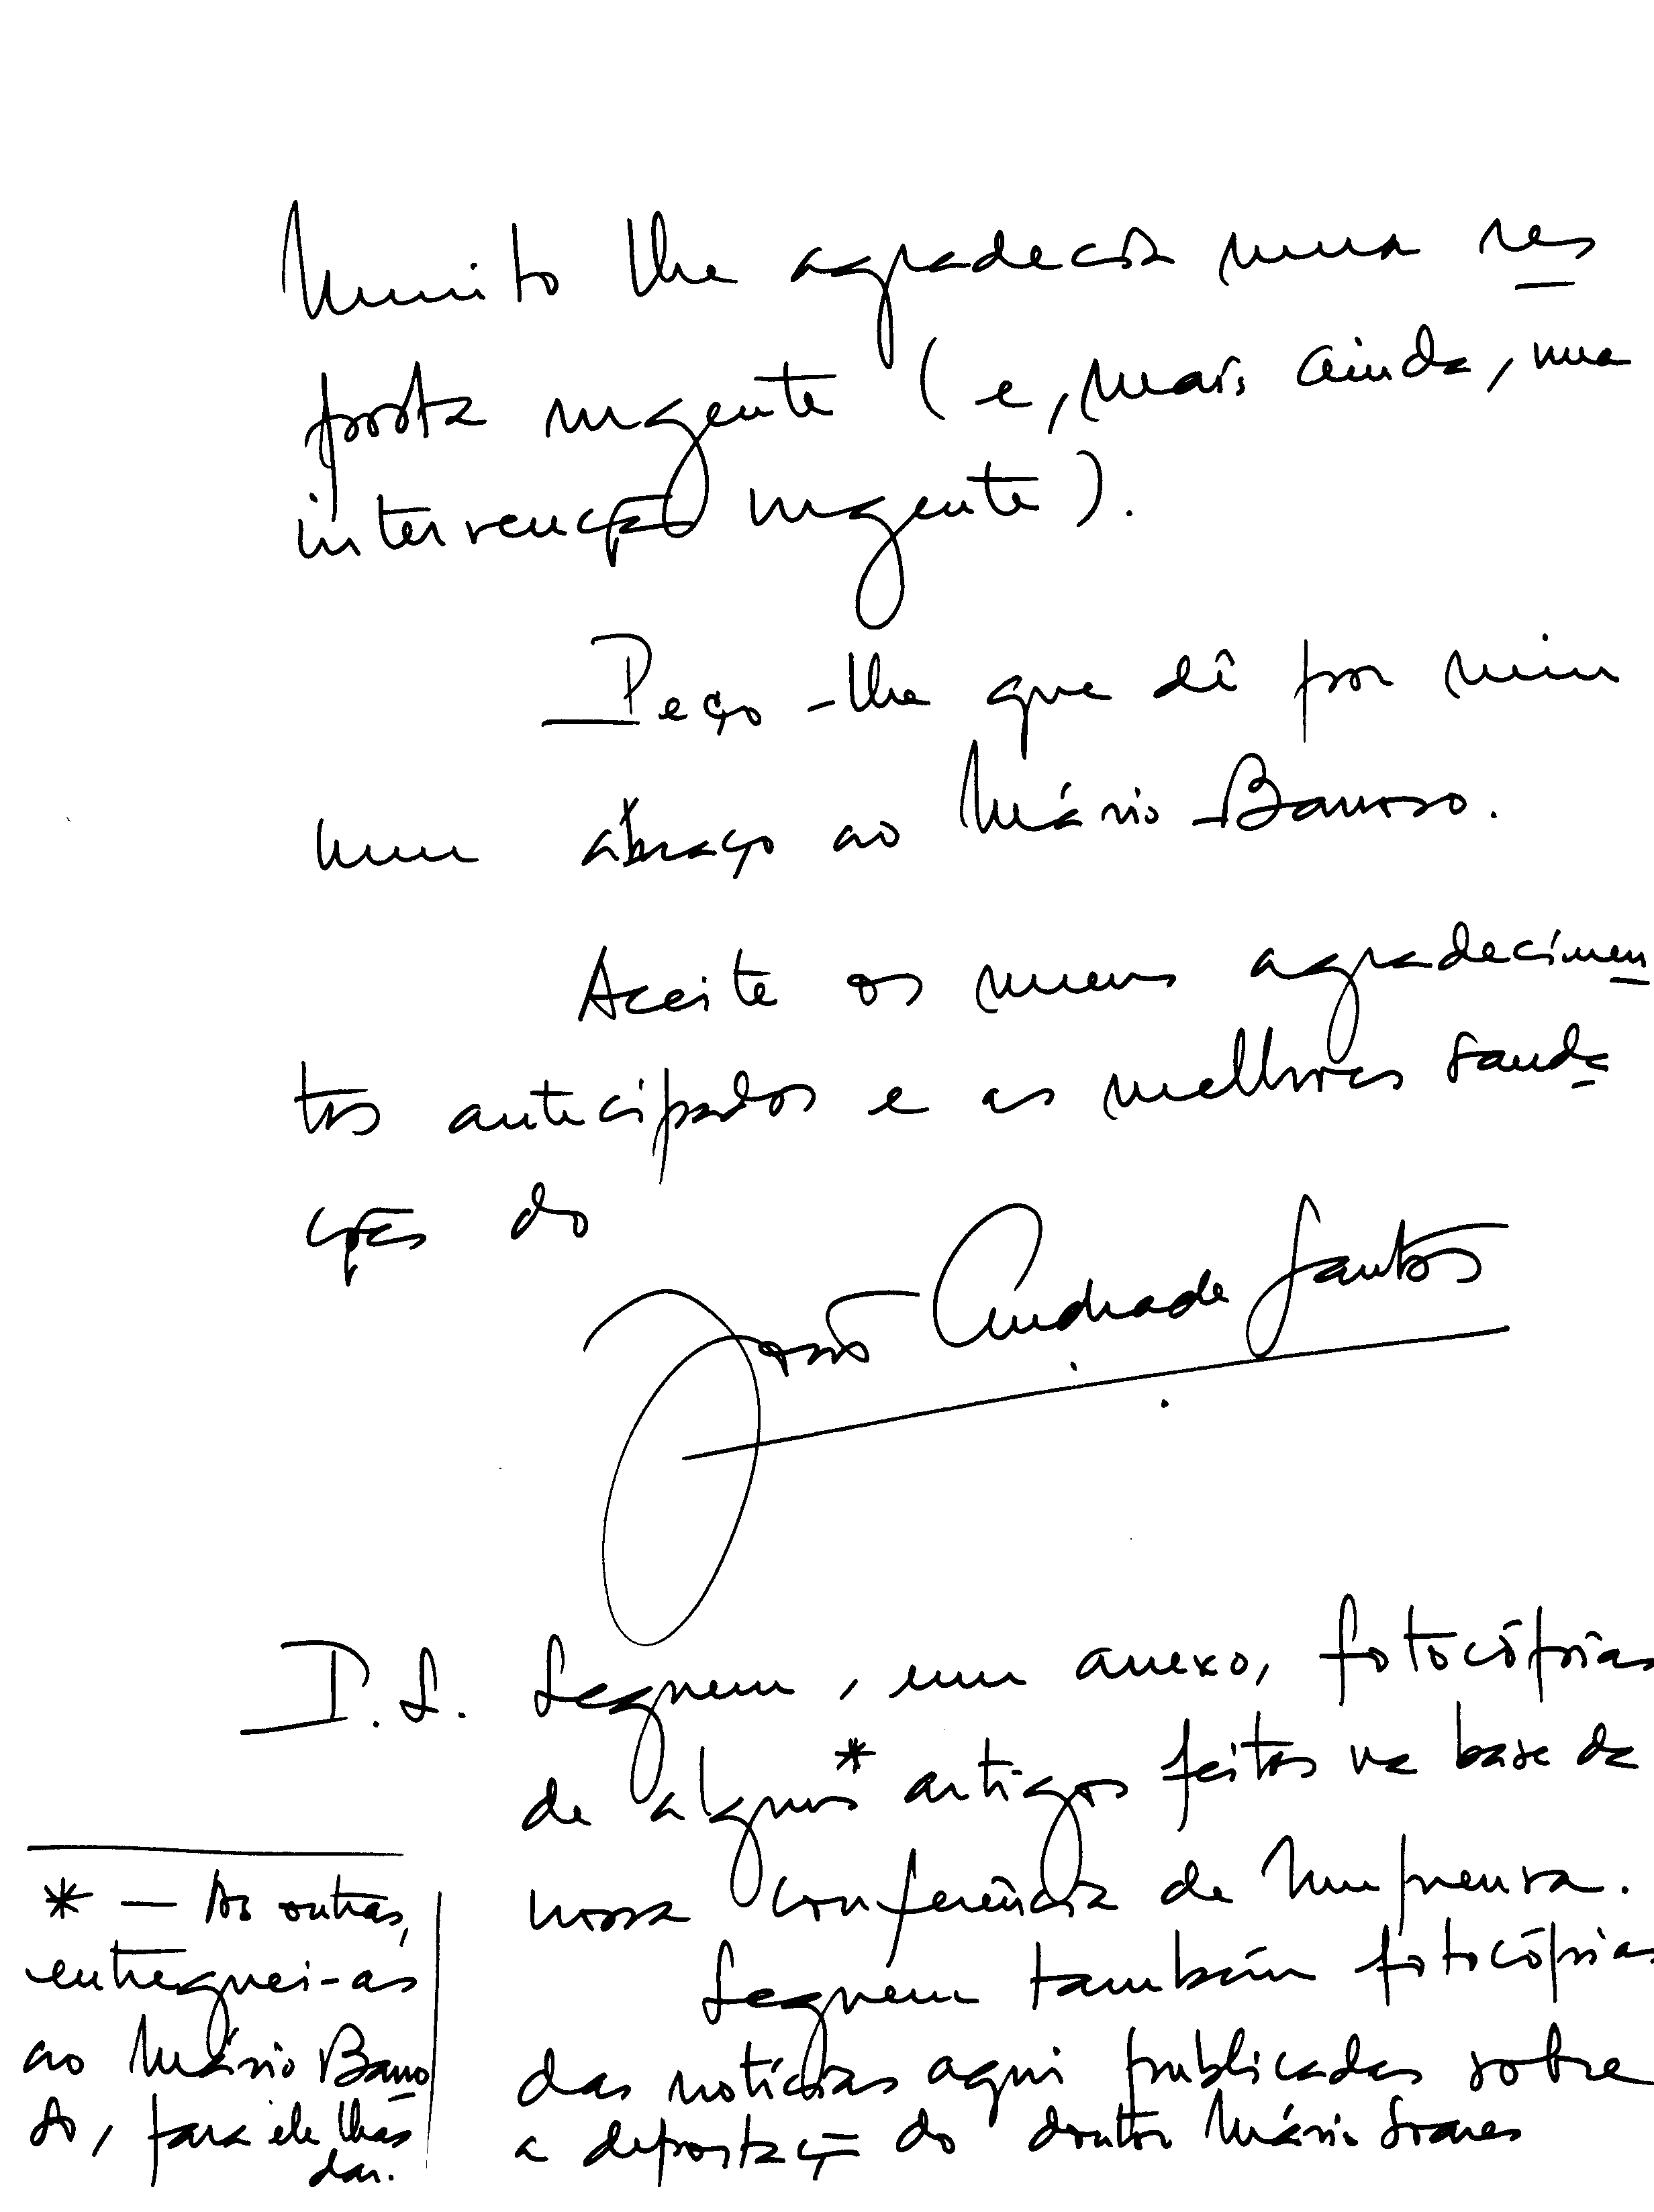 Muito lhe agradecia uma res
posta urgente (e, mais ainda, uma
intervenção urgente).
Peço-lhe que dê por mim
um abraço ao Mário Barroso.
Aceite os meus agradecimen
tos antecipados e as melhores sauda
ções do
João Andrade Santos
P.S. Seguem, em anexo, fotocópias
de alguns* artigos feitos na base da
nossa conferência de Imprensa.
Seguem também fotocópias
das notícias aqui publicadas sobre
a deportação do doutor Mário Soares
* — As outras,
entreguei-as
ao Mário Barro
so, para ele lhas
dar.